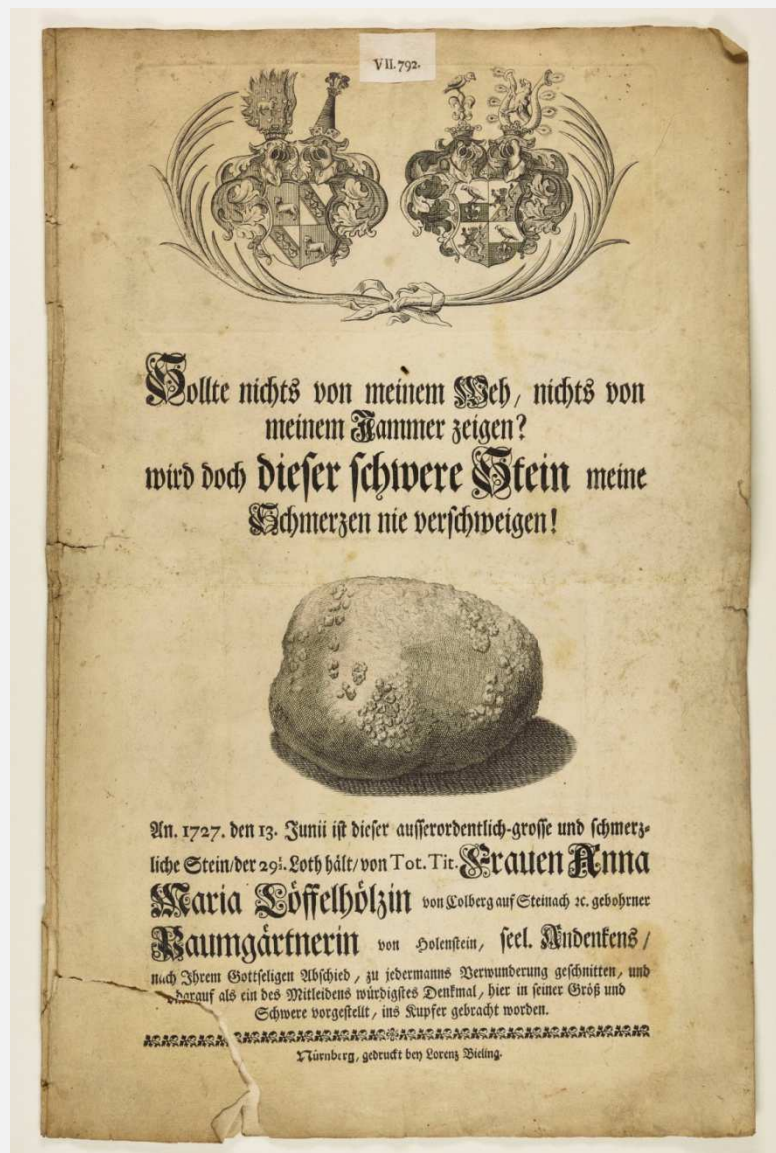 VII.792.
Sollte nichts von meinem Weh, nichts von
meinem Jammer zeigen?
wird doch dieser schwere Stein meine
Schmerzen nie verschweigen!
An. 1727. den 13. Junii ist dieser ausserordentlich-grosse und schmerz-
liche Stein/der 29½. Loth hält/von Tot. Tit. Frauen Anna
Maria Löffelhölzin von Colberg auf Steinach ꝛc. gebohrner
Paumgärtnerin von Holenstein, seel. Andenkens /
nach Ihrem Gottseligen Abschied, zu jedermanns Verwunderung geschnitten, und
darauf als ein des Mitleidens würdigstes Denkmal, hier in seiner Größ und
Schwere vorgestellt, ins Kupfer gebracht worden.
Nürnberg, gedruckt bey Lorenz Bieling.